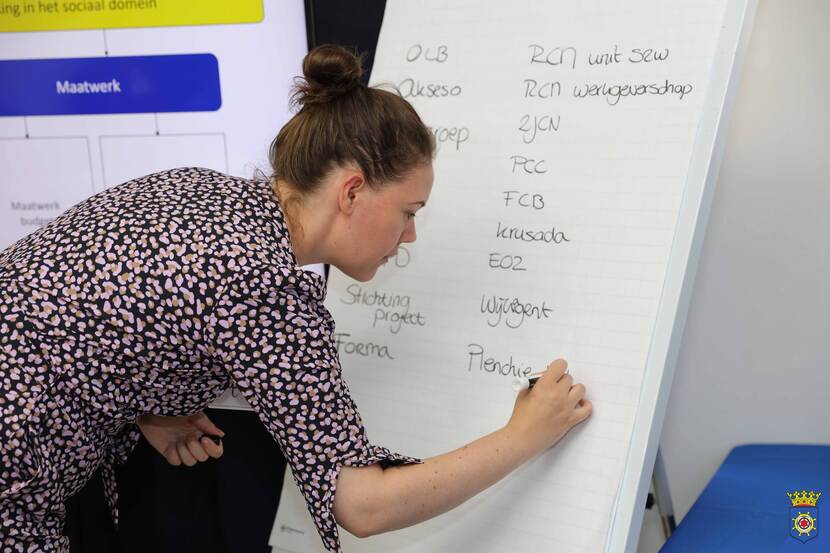 ing in het sociaal domein
Maatwerk
Maatwerk
OLB
Akseso
roep
Stichting
project
Forma
RCN unit szw
RCN werkgeverschap
2JCN
PCC
FCB
Krusada
EOZ
Plenchie